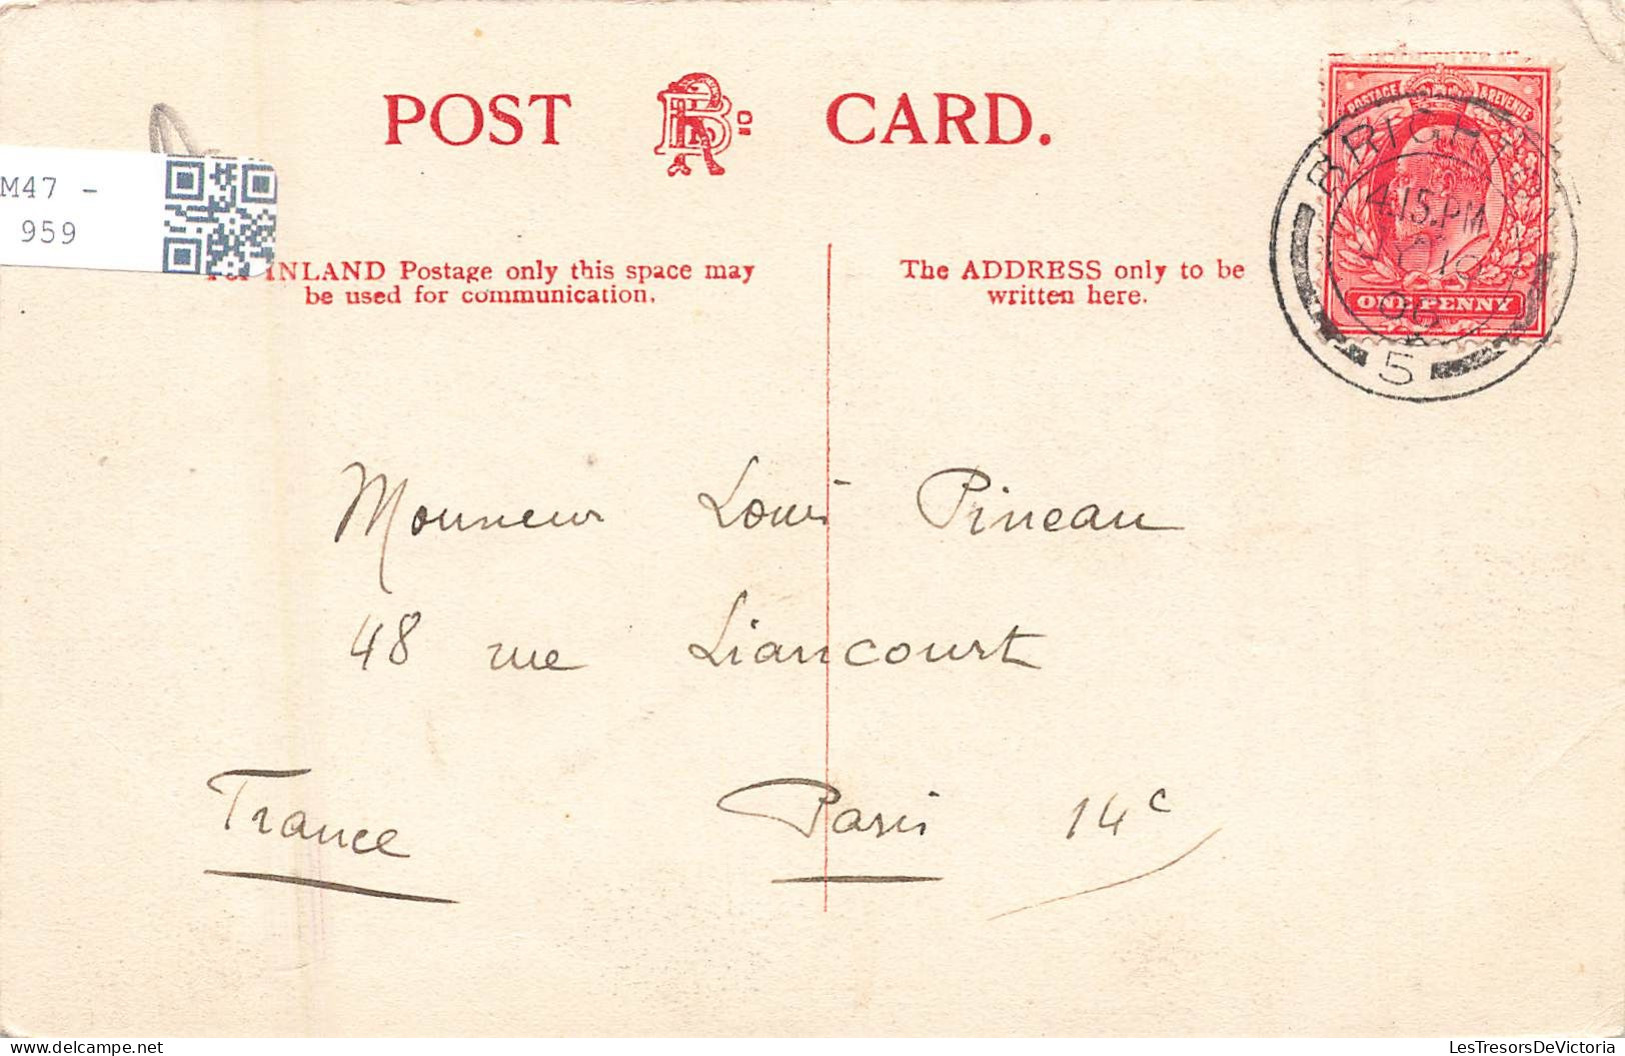 POST CARD.
M47 -
959
INLAND Postage only this space may
be used for communication.
The ADDRESS only to be
written here.
POSTAGE REVENUE
ONE PENNY
BRIGHTON
4.15.PM
06
5
Monsieur Louis Pineau
48 rue Liancourt
France Paris 14e
LesTresorsDeVictoria
delcampe.net